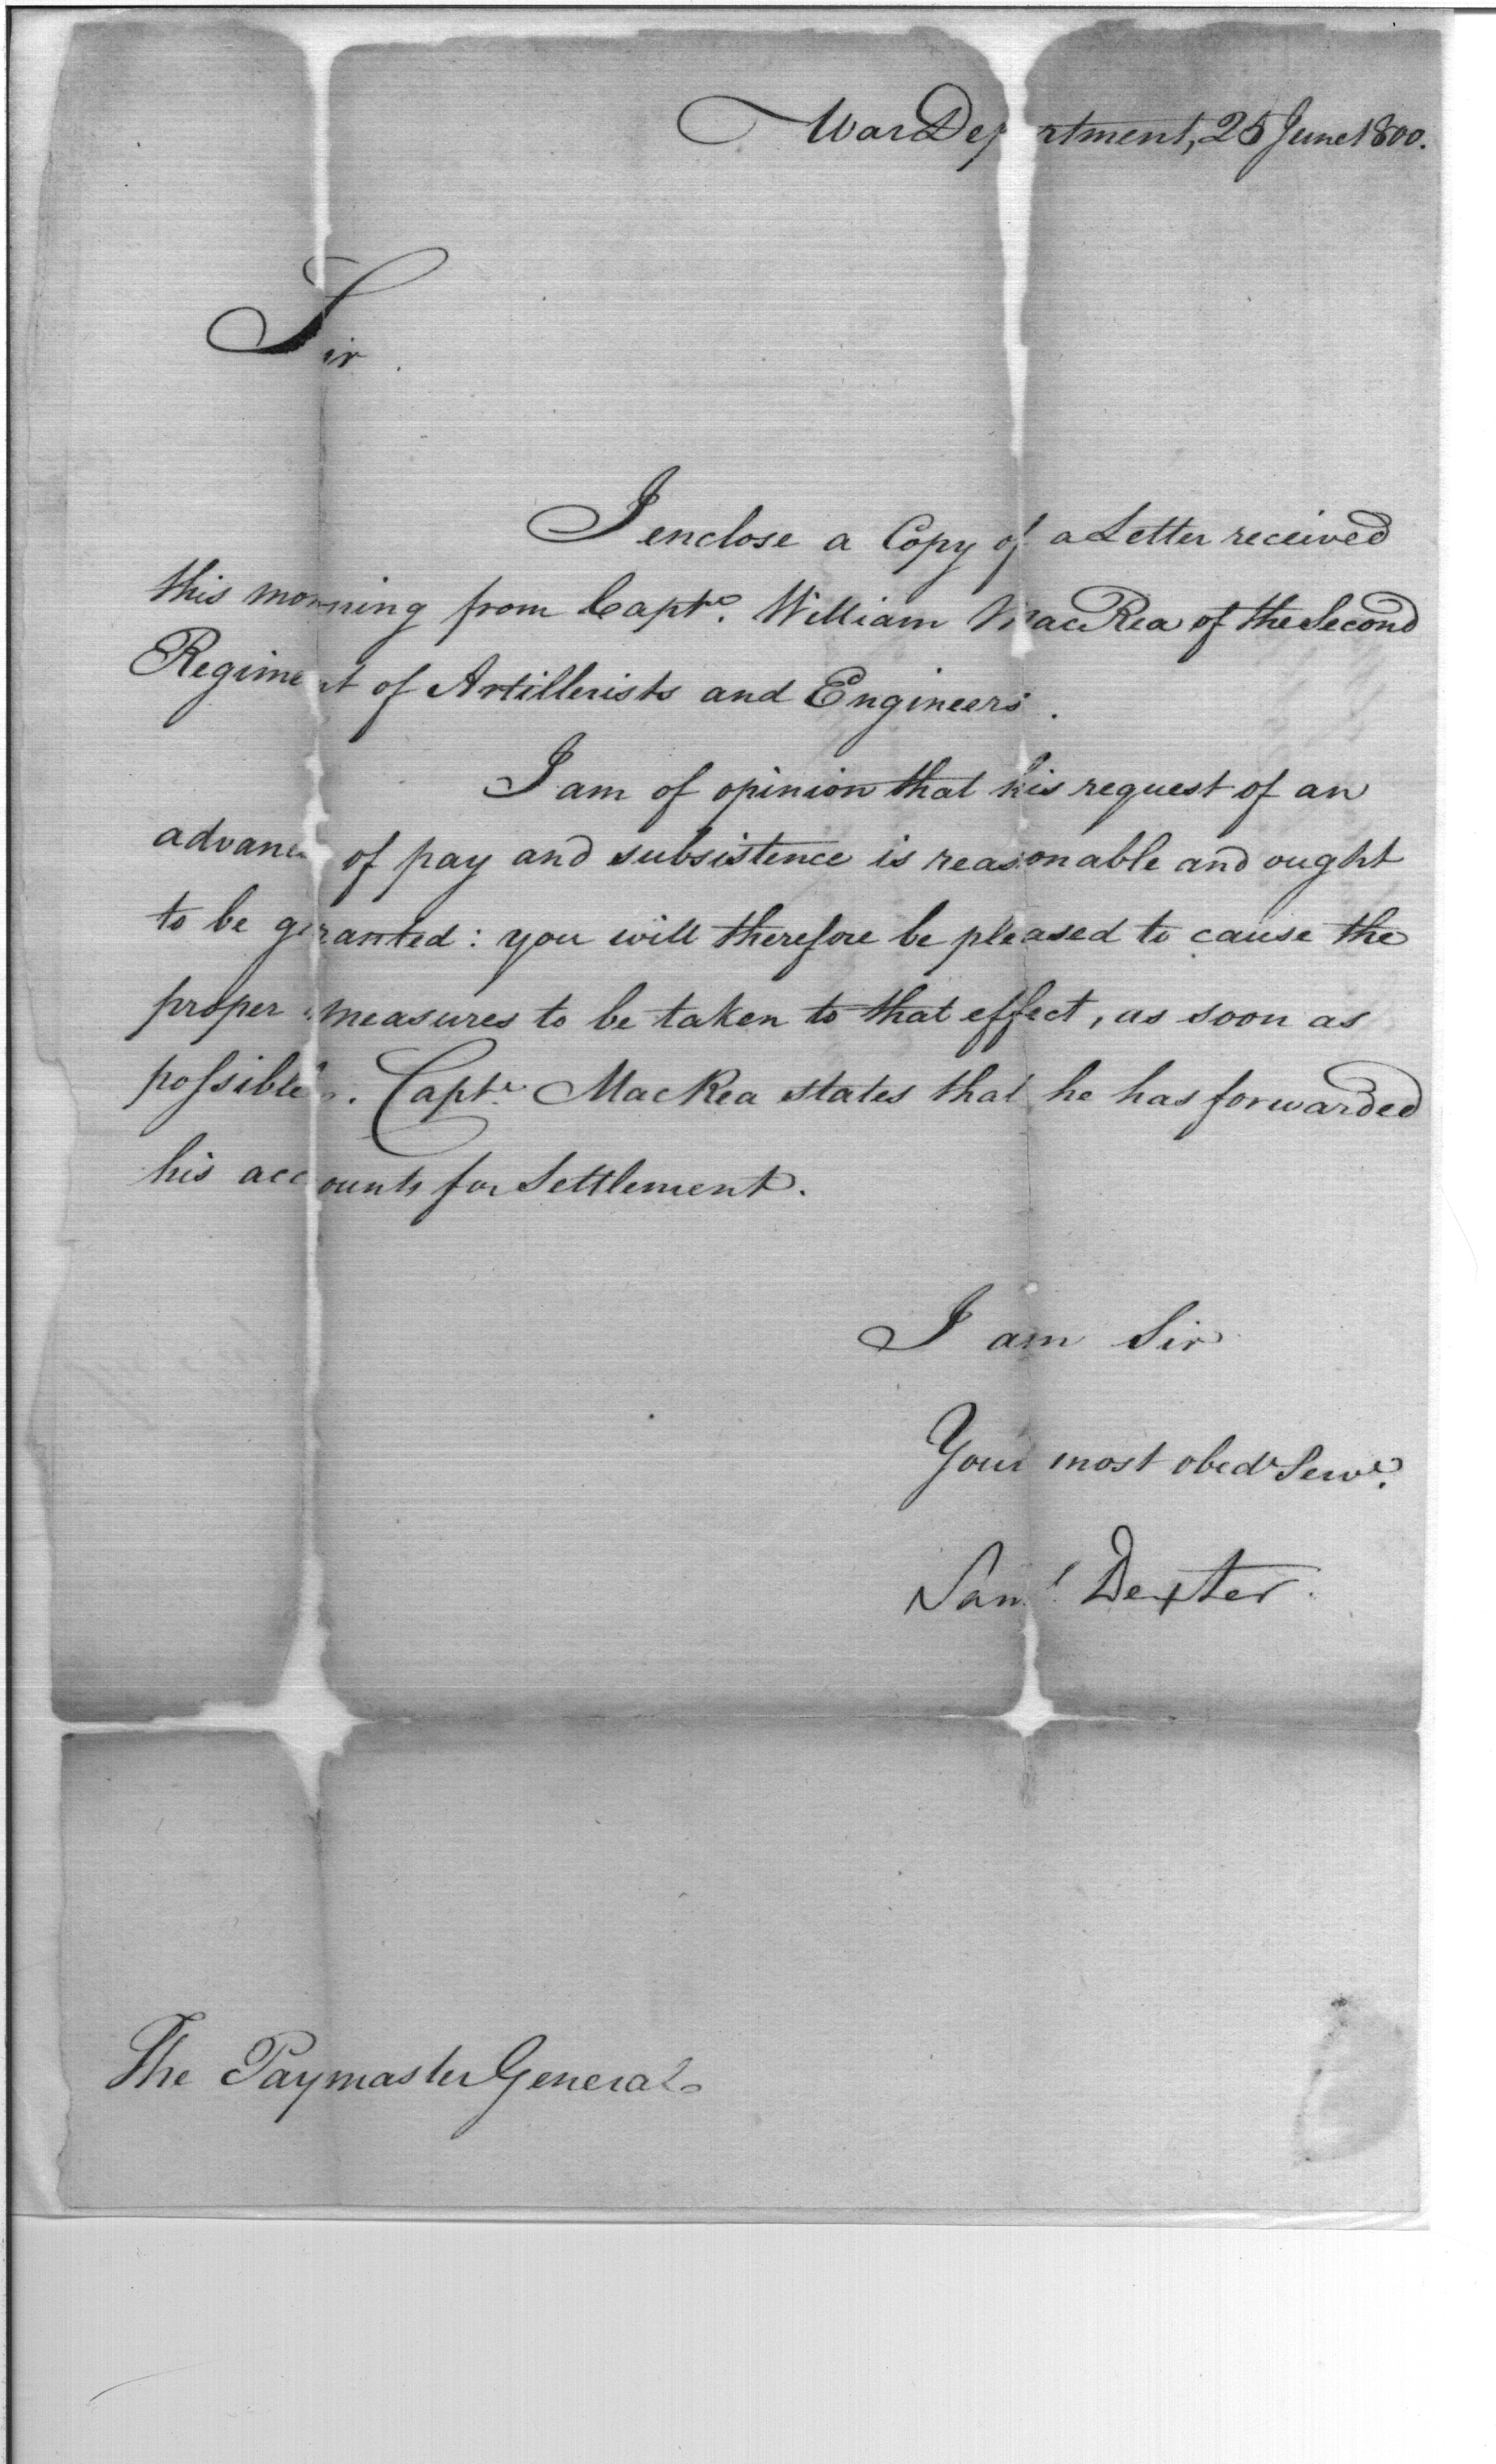 War Department, 25 June 1800.
Sir
I enclose a Copy of a Letter received
this morning from Capt. William MacRea of the Second
Regiment of Artillerists and Engineers.
I am of opinion that his request of an
advance of pay and subsistence is reasonable and ought
to be granted: you will therefore be pleased to cause the
proper measures to be taken to that effect, as soon as
possible. Capt. MacRea states that he has forwarded
his accounts for Settlement.
I am Sir
Your most obedt Servt.
Saml Dexter.
The Paymaster General